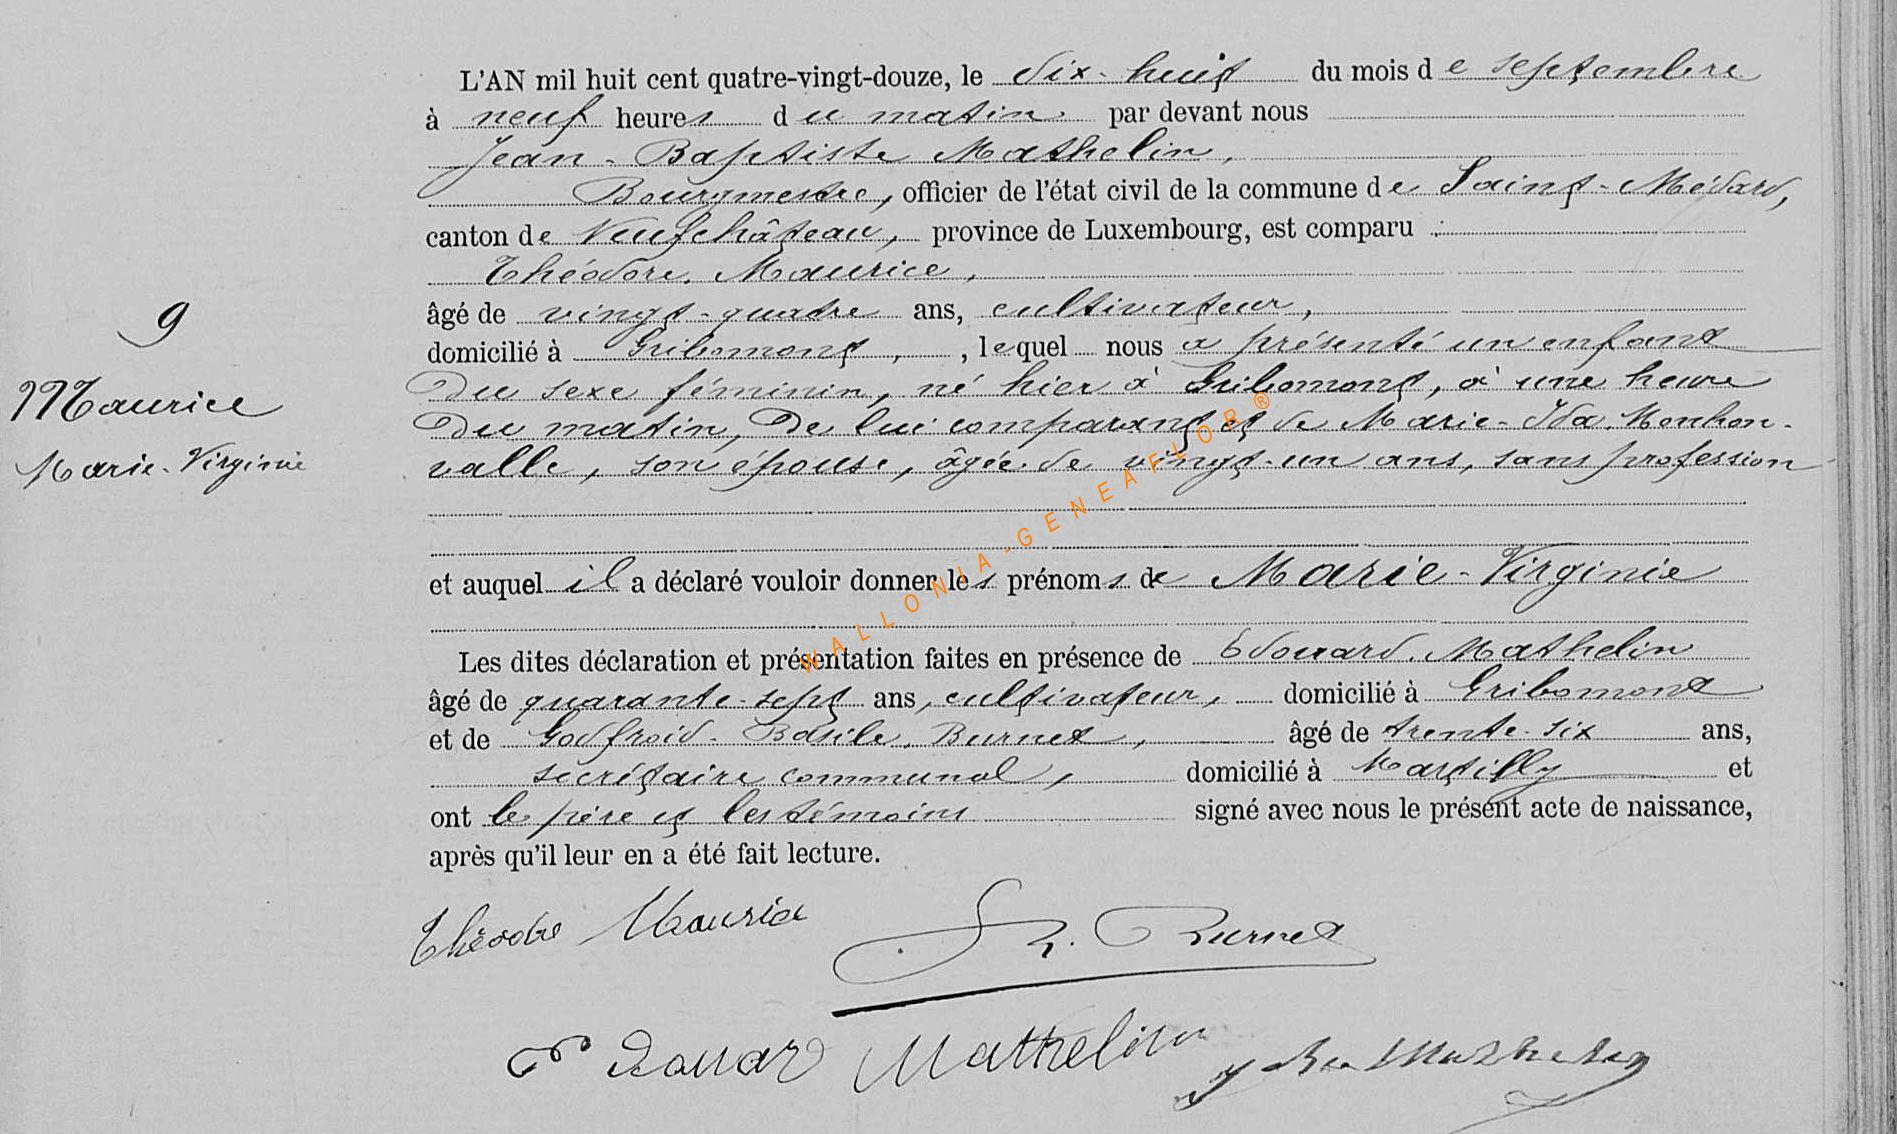 L'AN mil huit cent quatre-vingt-douze, le dix-huit du mois de septembre
à neuf heures du matin par devant nous
Jean-Baptiste Mathelin,
Bourgmestre, officier de l'état civil de la commune de Saint-Médard,
canton de Neufchâteau, province de Luxembourg, est comparu :
Théodore Maurice,
âgé de vingt-quatre ans, cultivateur,
domicilié à Gribomont, , lequel nous a présenté un enfant
du sexe féminin, né hier à Gribomont, à une heure
du matin, de lui comparant et de Marie-Ida Monhon-
valle, son épouse, âgée de vingt-un ans, sans profession
et auquel il a déclaré vouloir donner les prénoms de Marie-Virginie
Les dites déclaration et présentation faites en présence de Edouard Mathelin
âgé de quarante-sept ans, cultivateur, domicilié à Gribomont
et de Godfroid-Basile Burnet, âgé de trente-six ans,
secrétaire communal, domicilié à Martilly et
ont le père et les témoins signé avec nous le présent acte de naissance,
après qu'il leur en a été fait lecture.
9
Maurice
Marie-Virginie
Théodre Maurice
Burnet
Edouard Mathelin
WALLONIA-GENEAFLOR®